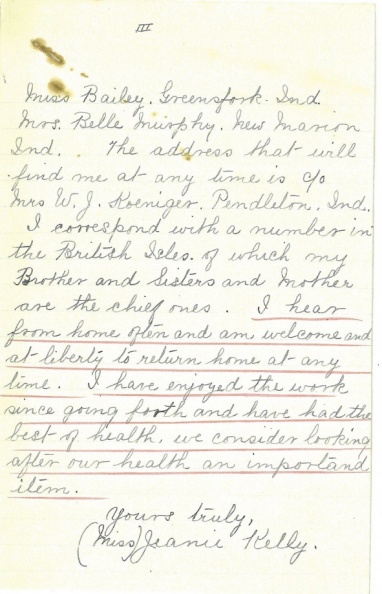 III
Miss Bailey. Greensfork. Ind.
Mrs. Belle Murphy. New Marion
Ind. . The address that will
find me at any time is c/o
Mrs W. J. Koeniger. Pendleton. Ind.
I correspond with a number in
the British Isles. of which my
Brother and Sisters and Mother
are the chief ones. I hear
from home often and am welcome and
at liberty to return home at any
time. I have enjoyed the work
since going forth and have had the
best of health, we consider looking
after our health an importand
item.
Yours truly,
(Miss) Jeanie Kelly.